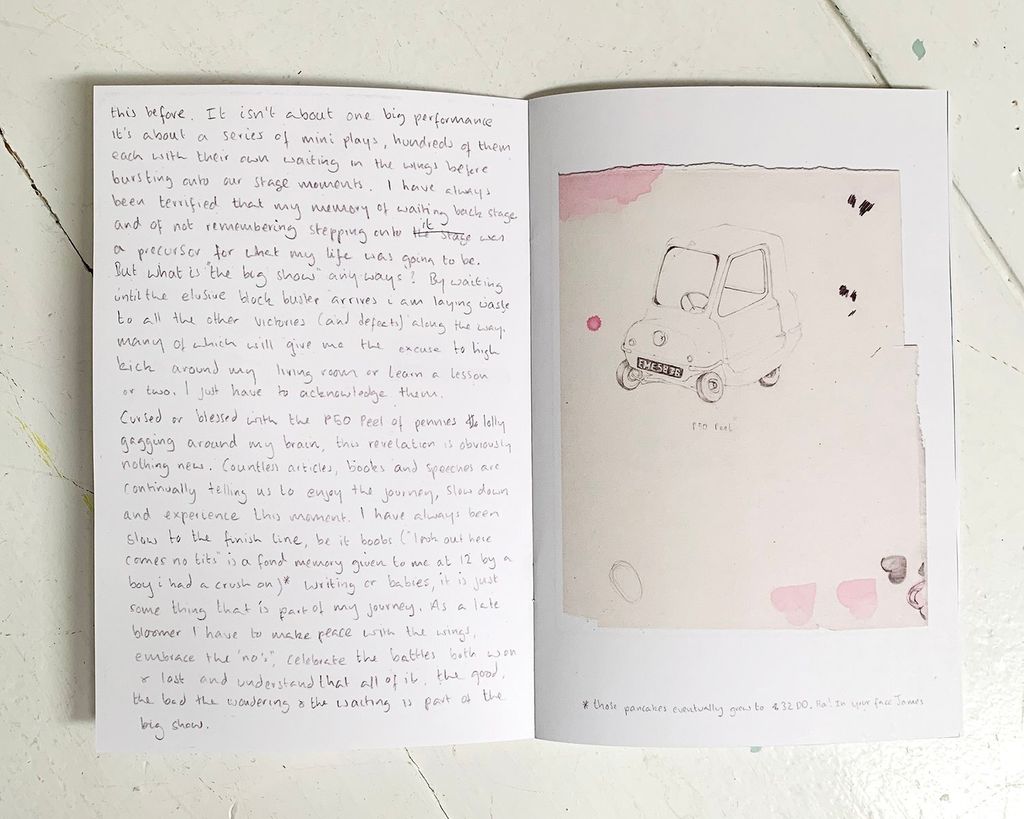 this before. It isn't about one big performance
it's about a series of mini plays, hundreds of them
each with their own waiting in the wings before
bursting onto our stage moments. I have always
been terrified that my memory of waiting back stage
and of not remembering stepping onto it the stage was
a precursor for what my life was going to be.
But what is "the big show" any-ways? By waiting
until the elusive block buster arrives i am laying waste
to all the other victories (and defects) along the way.
many of which will give me the excuse to high
kick around my living room or learn a lesson
or two. I just have to acknowledge them.
Cursed or blessed with the P50 Peel of pennies lolly
gagging around my brain, this revelation is obviously
nothing new. Countless articles, books and speeches are
continually telling us to enjoy the journey, slow down
and experience this moment. I have always been
slow to the finish line, be it boobs ("look out here
comes no tits" is a fond memory given to me at 12 by a
boy i had a crush on)* writing or babies, it is just
some thing that is part of my journey. As a late
bloomer I have to make peace with the wings,
embrace the 'no's', celebrate the battles both won
& lost and understand that all of it. the good,
the bad the wandering & the waiting is part of the
big show.
EME583B
P50 Peel
* those pancakes eventually grew to a 32DD. Ha! In your face James